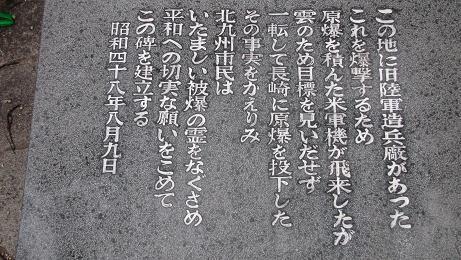 この地に旧陸軍造兵廠があった
これを爆撃するため
原爆を積んだ米軍機が飛来したが
雲のため目標を見いだせず
一転して長崎に原爆を投下した
その事実をかえりみ
北九州市民は
いたましい被爆の霊をなぐさめ
平和への切実な願いをこめて
この碑を建立する
昭和四十八年八月九日